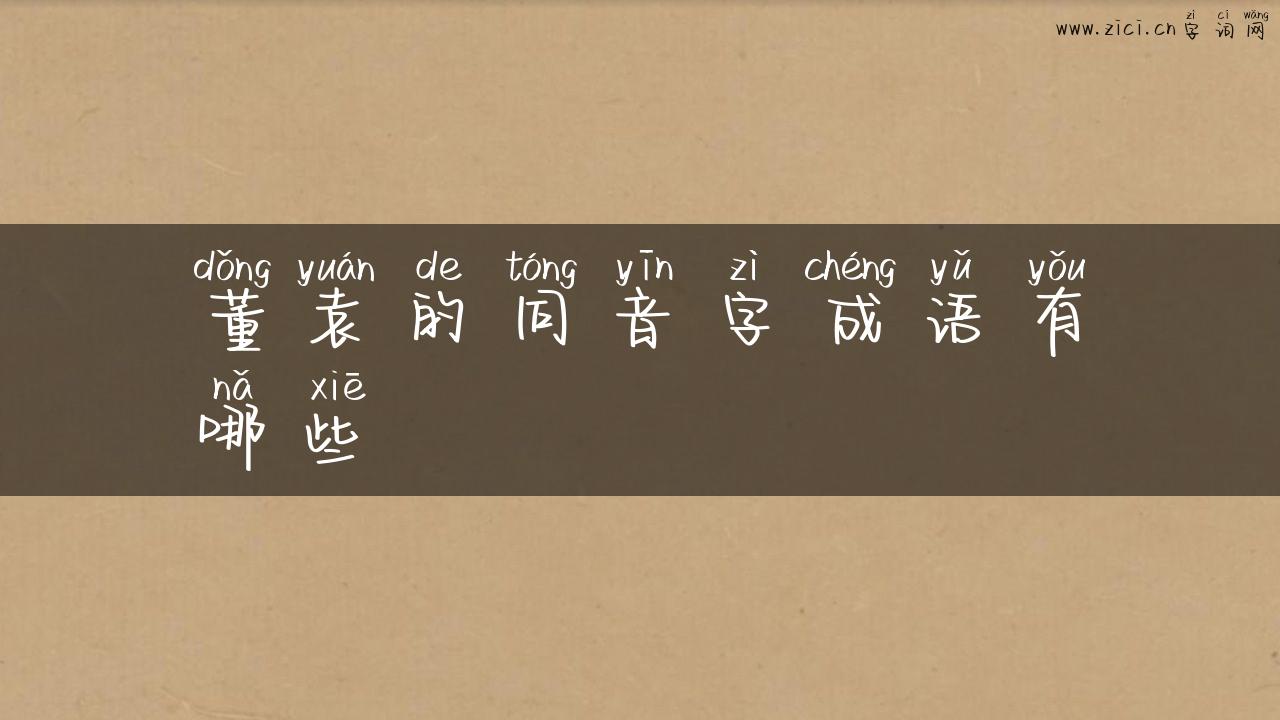 zì cí wǎng
www.zici.cn 字 词 网
dǒng yuán de tóng yīn zì chéng yǔ yǒu
董 袁 的 同 音 字 成 语 有
nǎ xiē
哪 些